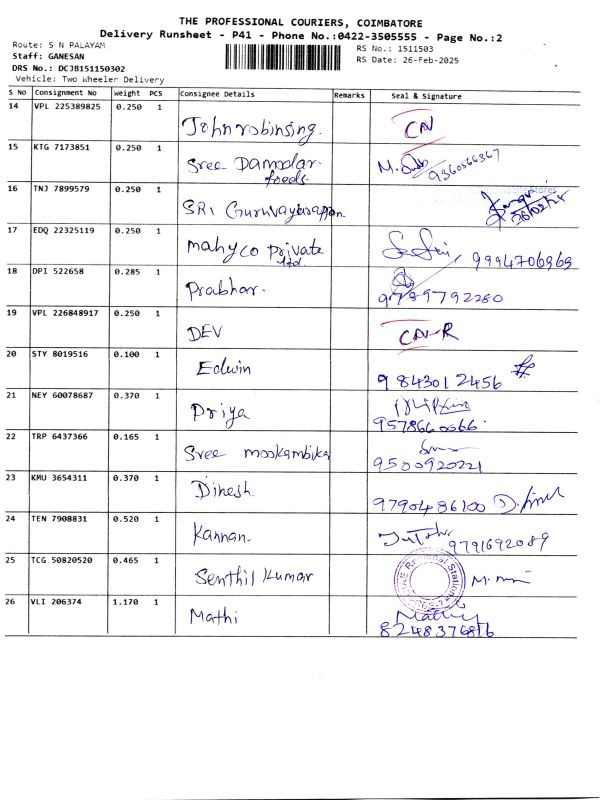 THE PROFESSIONAL COURIERS, COIMBATORE
Delivery Runsheet - P41 - Phone No.:0422-3505555 - Page No.:2
Route: S N PALAYAM
RS No.: 1511503
Staff: GANESAN
RS Date: 26-Feb-2025
DRS No.: DCJB151150302
Vehicle: Two Wheeler Delivery
S No Consignment No Weight PCS Consignee Details Remarks Seal & Signature
14 VPL 225389825 0.250 1 Johnrobinsing. CN
15 KTG 7173851 0.250 1 Sree Damodar foods. 9360566367
16 TNJ 7899579 0.250 1 SRI Guruvayurappan
17 EDQ 22325119 0.250 1 mahyco private ltd 9994706969
18 DPI 522658 0.285 1 Prabhar. 9789792280
19 VPL 226848917 0.250 1 DEV CN-R
20 STY 8019516 0.100 1 Edwin 9843012456
21 NEY 60078687 0.370 1 Priya 9578660566
22 TRP 6437366 0.165 1 Sree mookambika 9500920221
23 KMU 3654311 0.370 1 Dinesh 9790486100
24 TEN 7908831 0.520 1 Kannan. 9791692089
25 TCG 50820520 0.465 1 Senthil Kumar
26 VLI 206374 1.170 1 Mathi Mathi 8248376816